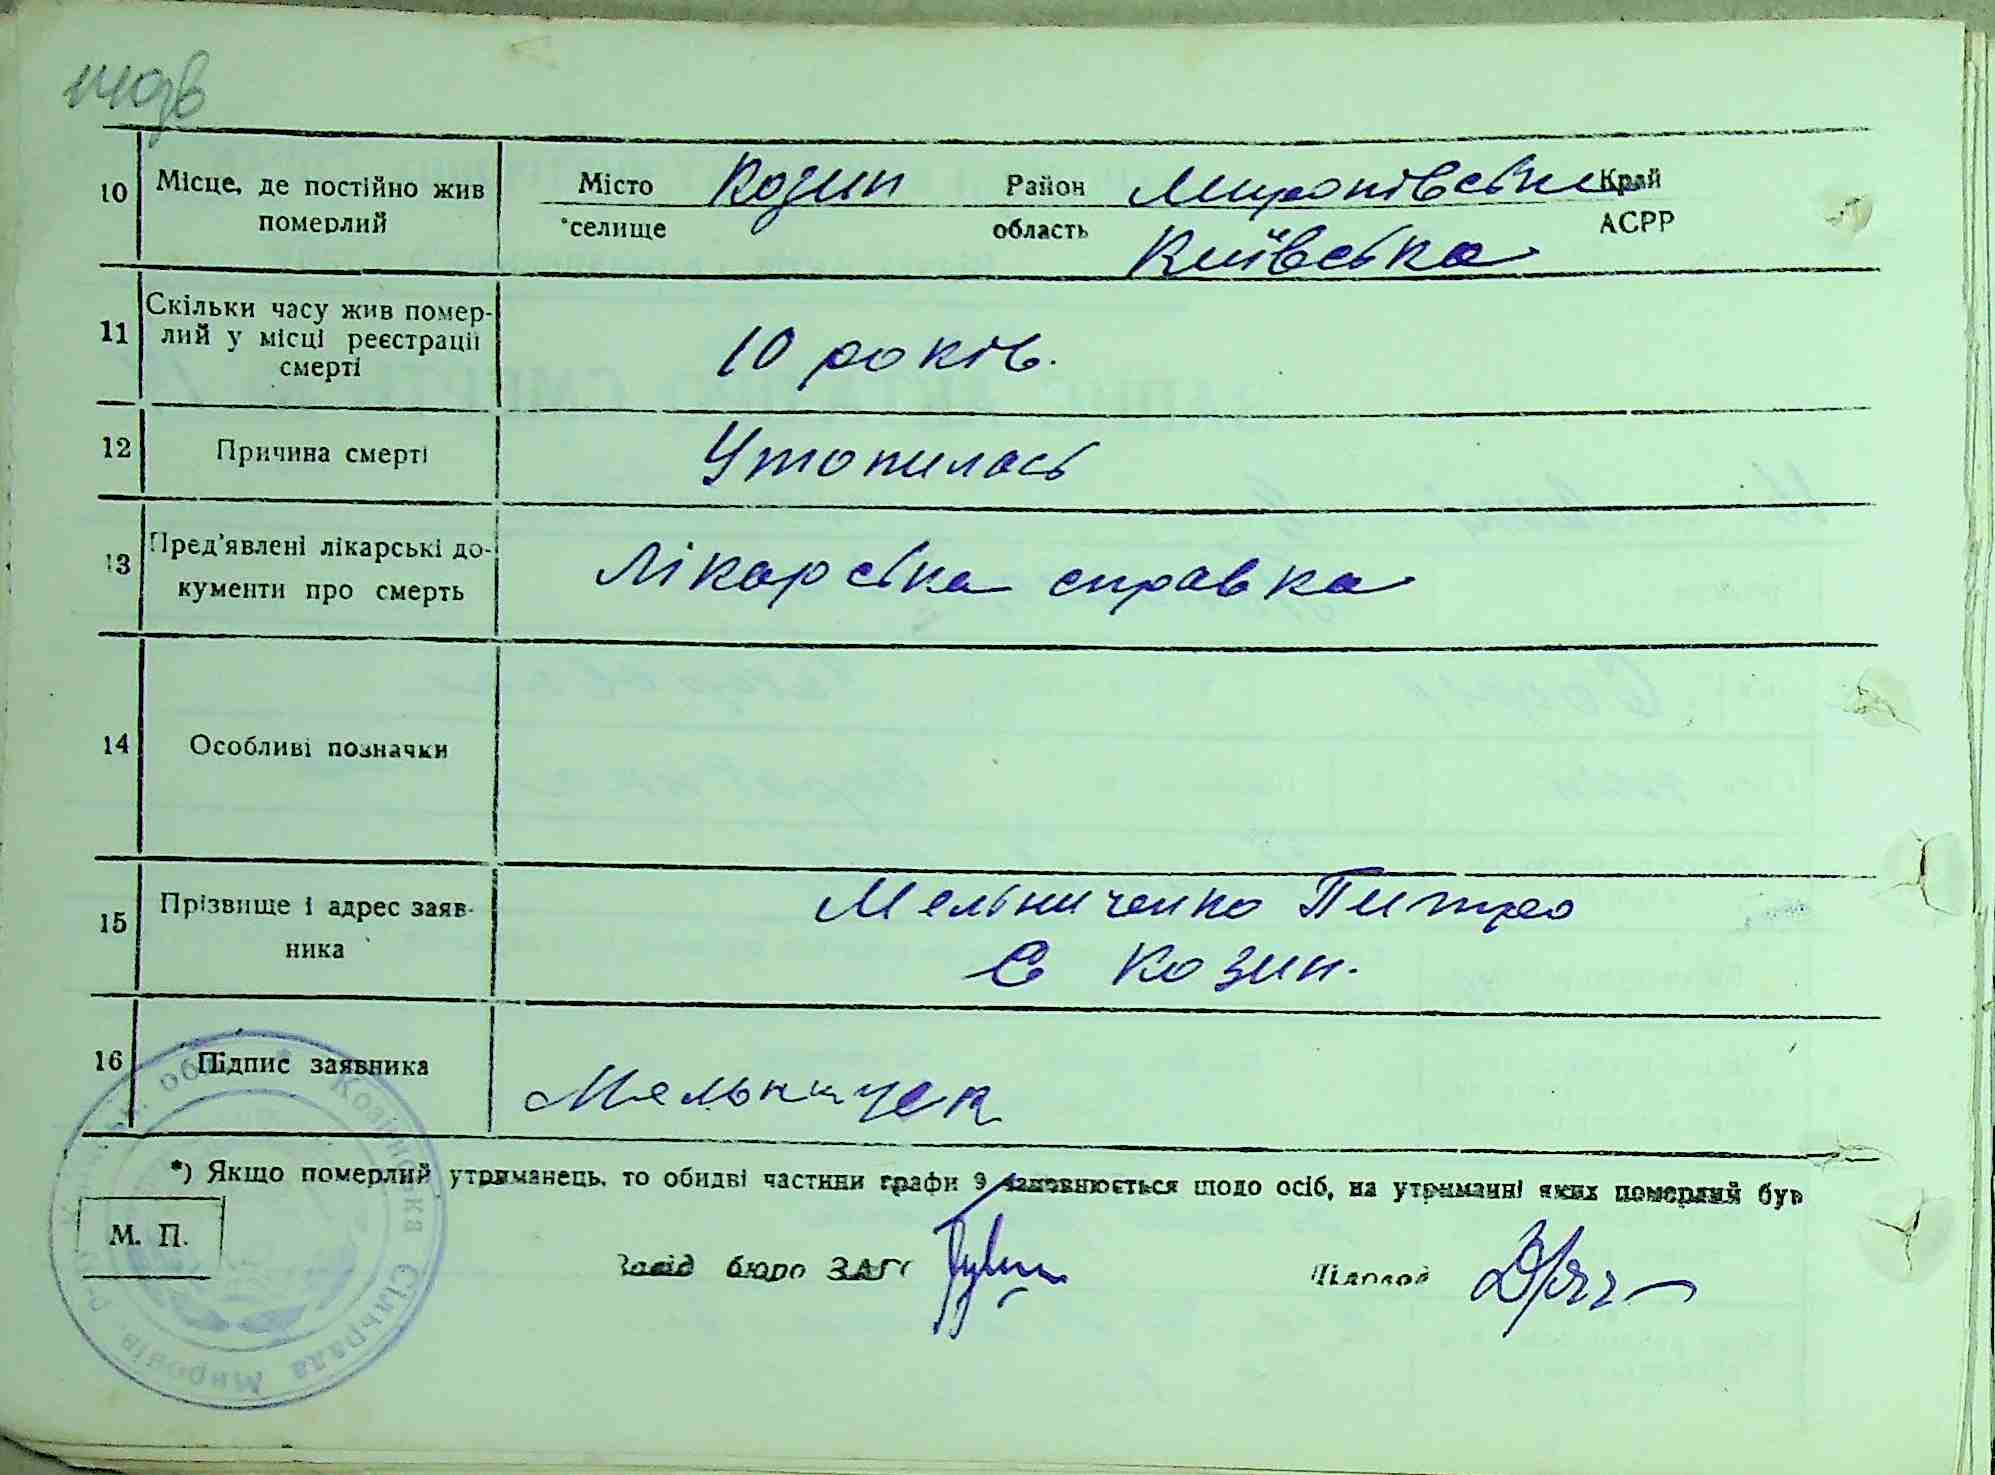 140зв
10 Місце, де постійно жив померлий
Місто Козин Район Миронівськи Край
*селище область Київська АСРР
11 Скільки часу жив помер-
лий у місці реєстрації
смерті
10 років.
12 Причина смерті Утопилась
13 Пред'явлені лікарські до-
кументи про смерть
Лікарська справка
14 Особливі позначки
15 Прізвище і адрес заяв-
ника
Мельниченко Питро
С Козин.
16 Підпис заявника Мельничен
*) Якщо померлий утриманець, то обидві частини графи 9 заповнюється щодо осіб, на утриманні яких померлий був
М. П.
Завід бюро ЗАГС Діловод
Козинська Сільрада Миронів. р-ну обл.